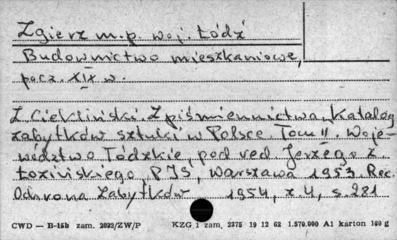 Zgierz m.p. woj. Łódź
Budownictwo mieszkaniowe,
pocz. XIX w.
Z. Ciekliński. Z piśmiennictwa. Katalog
zabytków sztuki w Polsce. Tom II. Woje-
wództwo Łódzkie, pod red. Jerzego Z.
Łozińskiego, PIS, Warszawa 1953. Rec.
Ochrona Zabytków 1954, z. 4, s. 281
CWD — B-15b zam. 2093/ZW/P KZG 1 zam. 2375 19 12 62 1.570.000 A1 karton 160 g